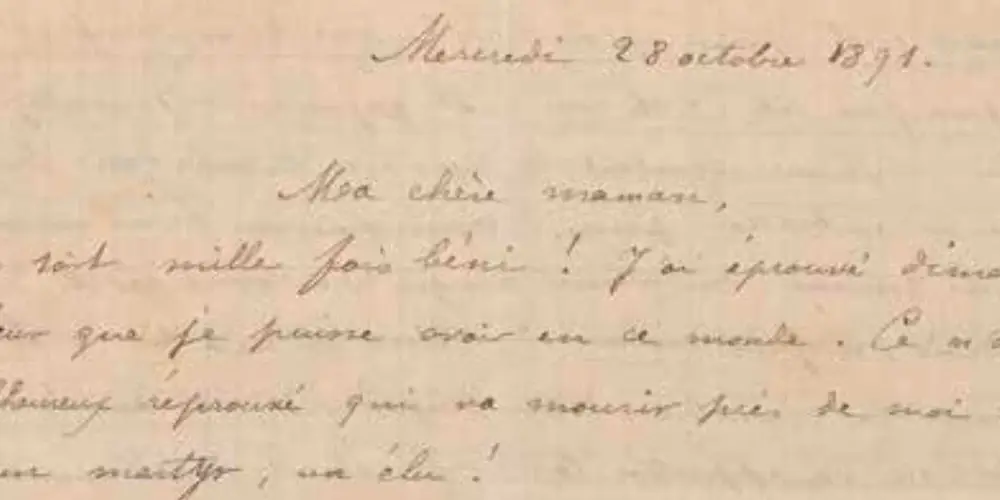 Mercredi 28 octobre 1891.
Ma chère maman,
soit mille fois béni ! J'ai éprouvé
que je puisse avoir en ce monde. Ce n'
réprouvé qui va mourir près de moi
martyr, un élu !